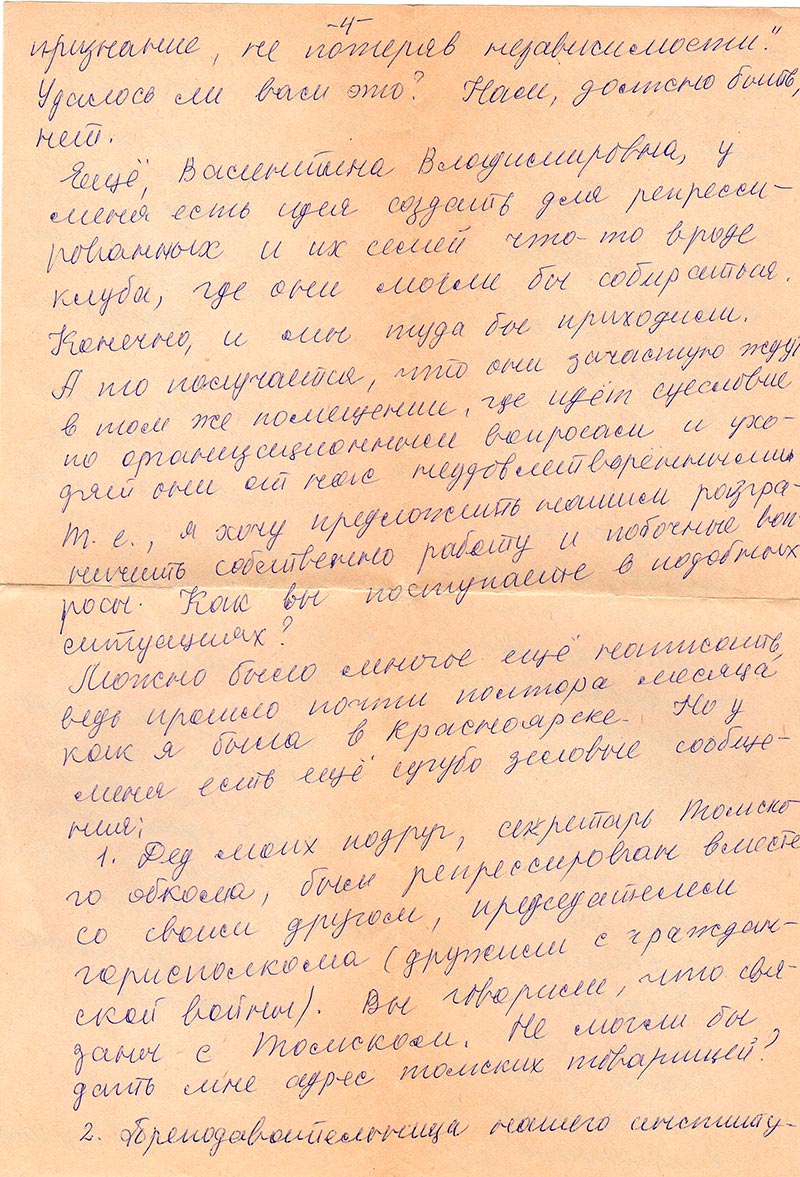 -4-
признание, не потеряв независимости."
Удалось ли вам это? Нам, должно быть,
нет.
Ещё, Валентина Владимировна, у
меня есть идея создать для репресси-
рованных и их семей что-то вроде
клуба, где они могли бы собираться.
Конечно, и мы туда бы приходили.
А то получается, что они зачастую ждут
в том же помещении, где идёт суесловие
по организационным вопросам и ухо-
дят они от нас неудовлетворёнными.
Т. е., я хочу предложить нашим разгра-
ничить собственно работу и побочные воп-
росы. Как вы поступаете в подобных
ситуациях?
Можно было многое ещё написать,
ведь прошло почти полтора месяца,
как я была в Красноярске. Но у
меня есть ещё сугубо деловые сообще-
ния:
1. Дед моих подруг, секретарь Томско
го обкома, был репрессирован вместе
со своим другом, председателем
горисполкома (дружили с граждан-
ской войны). Вы говорили, что свя-
заны с Томском. Не могли бы
дать мне адрес томских товарищей?
2. Преподавательница нашего институ-